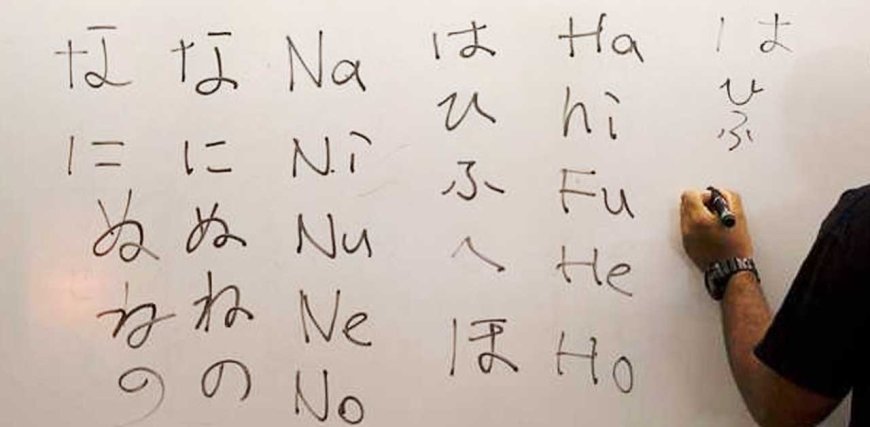 な な Na は Ha は
に に Ni ひ hi ひ
ぬ ぬ Nu ふ Fu ふ
ね ね Ne へ He
の の No ほ Ho